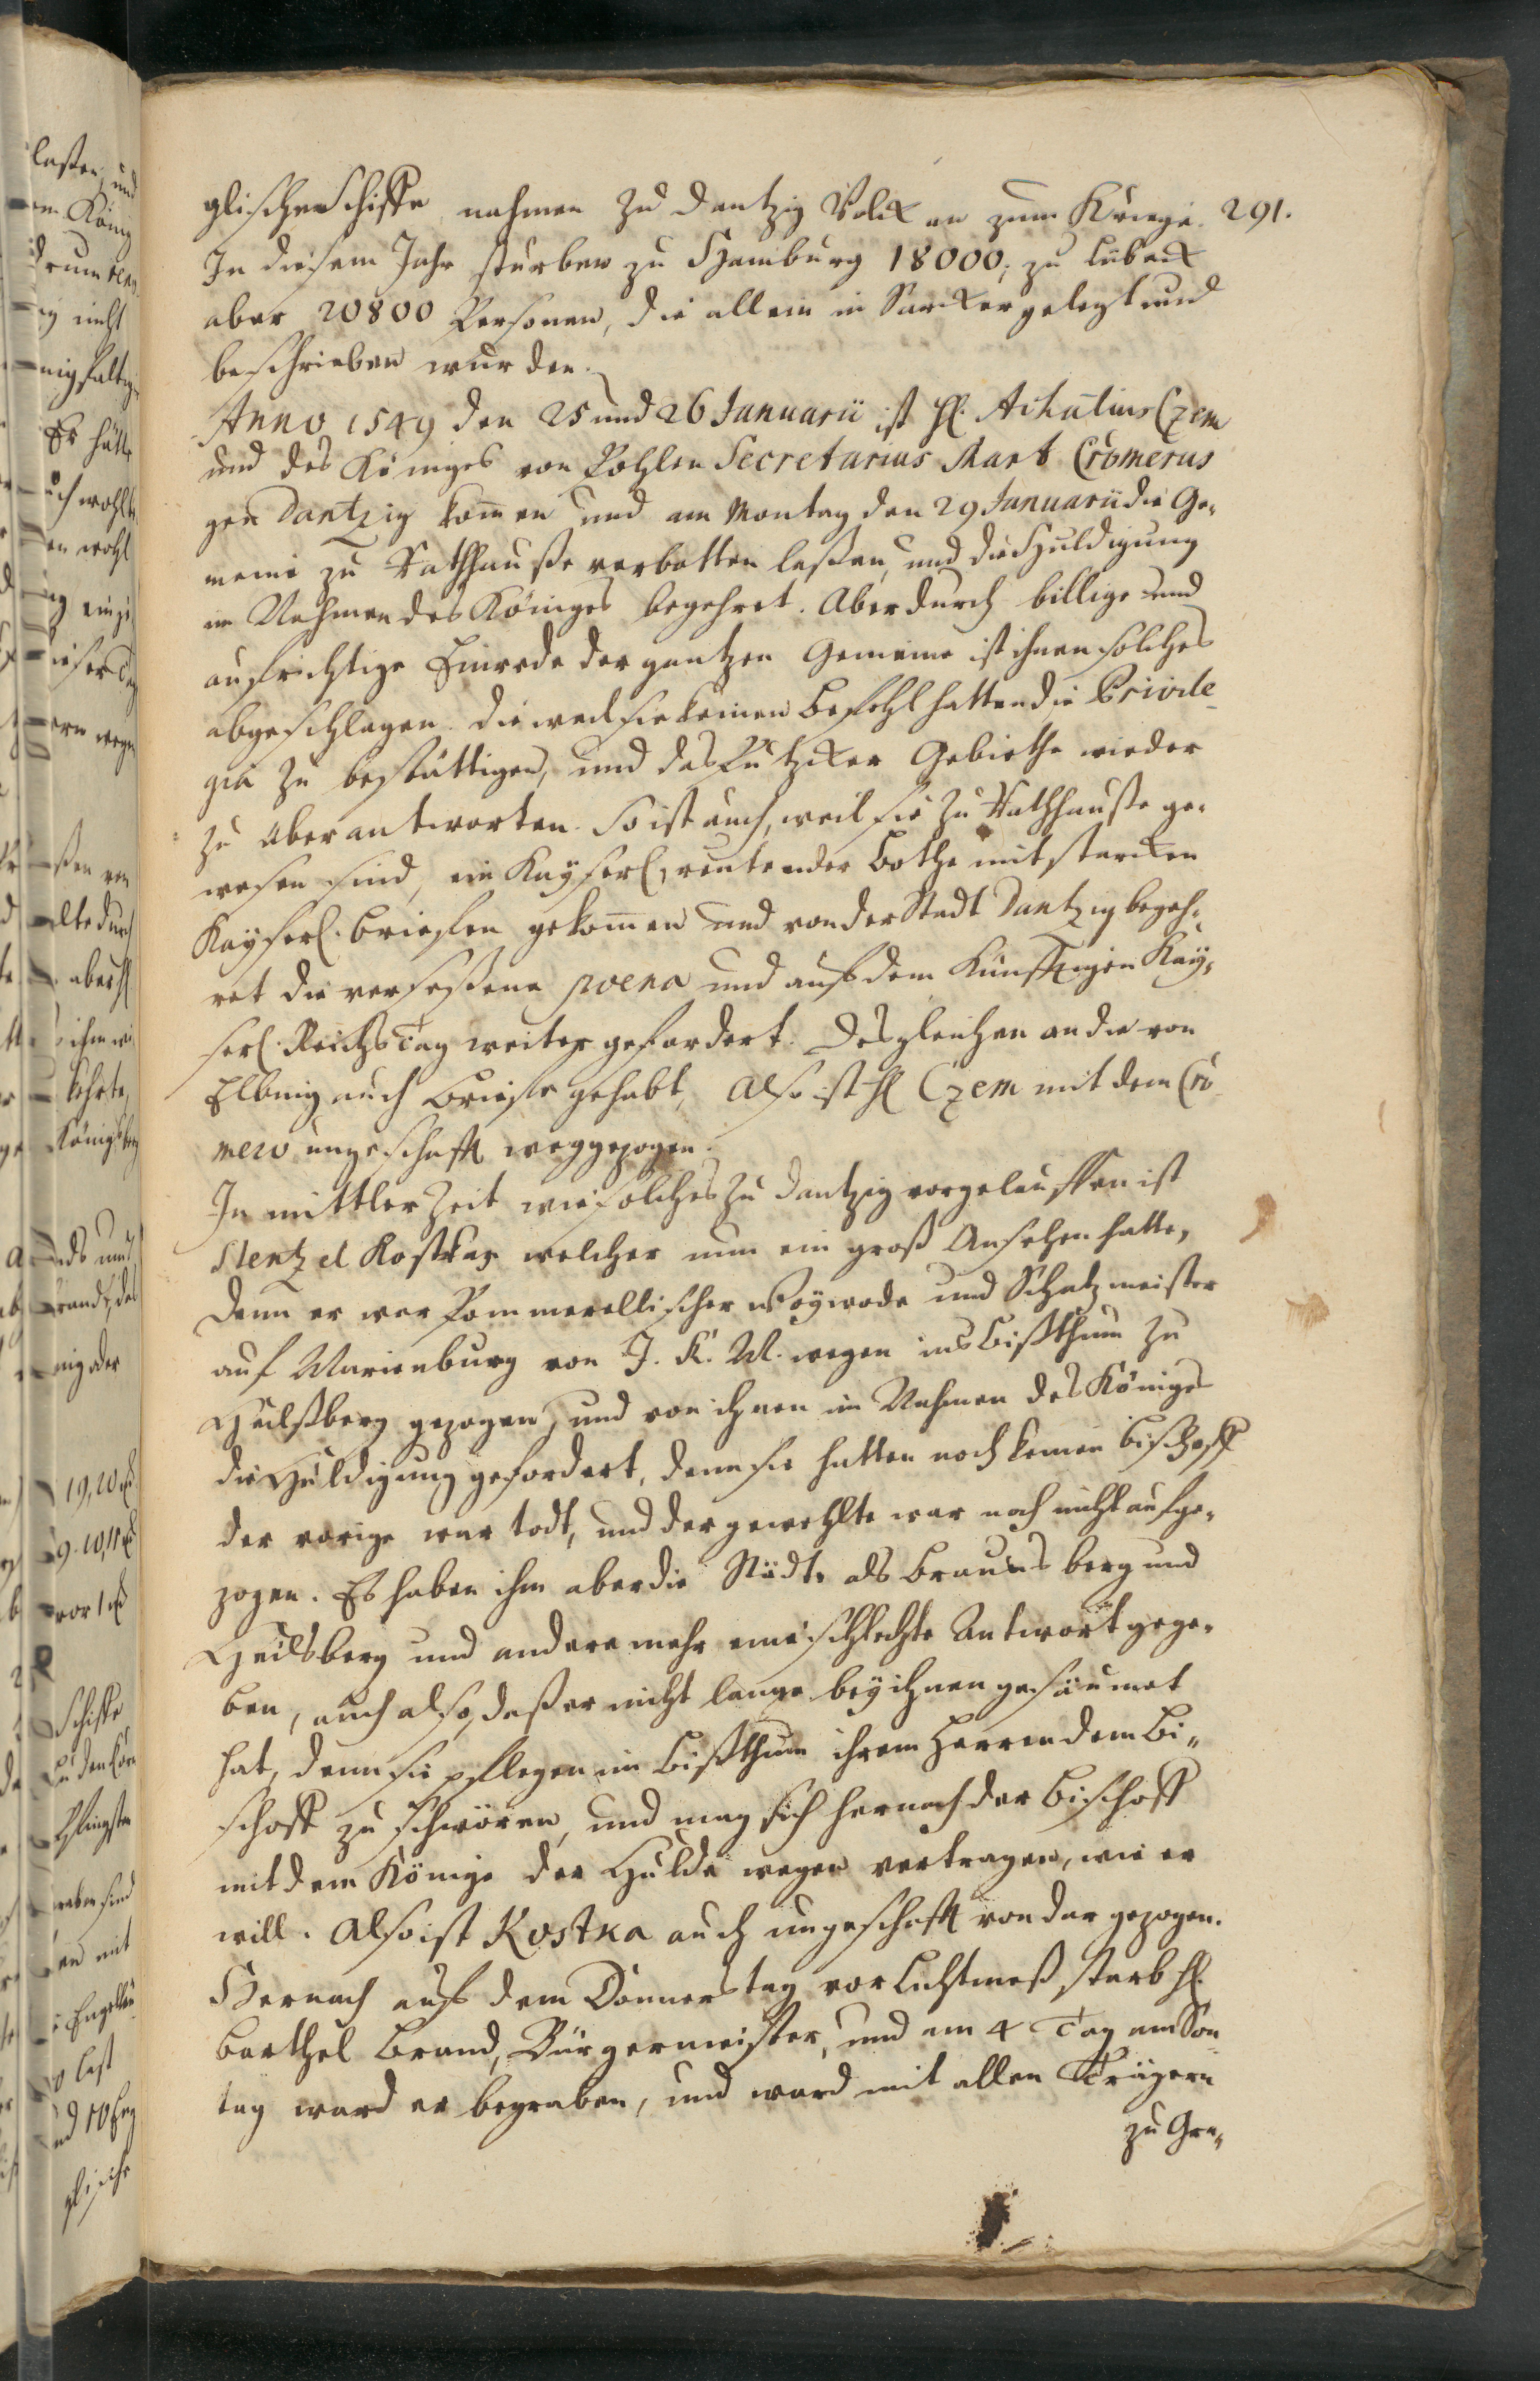 291.
glische Schiffe nahmen zu Dantzig Volck an zum Kriege.
In diesem Jahr sturben zu Hamburg 18000, zu Lübeck
aber 20800 Personen, die allein in Särcker gelegt und
beschrieben wurden.
Anno 1549 den 25 und 26 Januarii ist H. Achatius Czem
und des Königes von Pohlen Secretarius Mart Cromerus
gen Dantzig kom̄en und am Montag den 29 Januarii die Ge-
meine zu Rathhauße verbotten laßen, und die Huldigung
im Nahmen des Königes begehret. Aber durch billige und
aufrichtige Einrede der gantzen Gemeine ist ihnen solches
abgeschlagen. die weil sie keinen Befehl hatten die Privile-
gia zu bestättigen, und das Putzker Gebiethe wieder
zu überantworten. So ist auch, weil sie zu Rathhauße ge-
wesen sind, ein Kayserl. reutender Bothe mit starcken
Kayserl. Briefen gekom̄en und von der Stadt Dantzig begeh-
ret die verseßene poena und auf dem künfftigen Kay-
serl. Reichs Tag weiter gefordert. Desgleichen an die von
Elbing auch Briefe gehabt, Also ist H Czem mit dem Cro-
mero ungeschafft weggezogen.
In mittler Zeit wie solches zu Dantzig vorgelauffen ist
Stentzel Kostka, welcher nun ein groß Ansehen hatte,
denn er war Pommerellischer Woywode und Schatzmeister
auf Marienburg von J. K. M. wegen ins Bißthum zu
Heilßberg gezogen, und von ihnen im Nahmen des Königes
die Huldigung gefordert, denn sie hatten noch keinen Bischoff
der vorige war todt, und der gewehlte war noch nicht aufge-
zogen. Es haben ihm aber die Städte als Braunsberg und
Heilsberg und andere mehr eine schlechte Antwort gege-
ben, auch also, daß er nicht lange bey ihnen gesäumet
hat, denn sie pflegen im Bißthum ihrem Herren dem Bi-
schoff zu schwören, und mag sich hernach der Bischoff
mit dem Könige der Hulde wegen vertragen, wie er
will. Also ist Kostka auch ungeschafft von dar gezogen.
Hernach auf dem Donnerstag vor Lichtmeß starb H.
Barthel Brand, Bürgermeister, und am 4 Tag am Son-
tag ward er begraben, und ward mit allen Trägern
zu Gra-